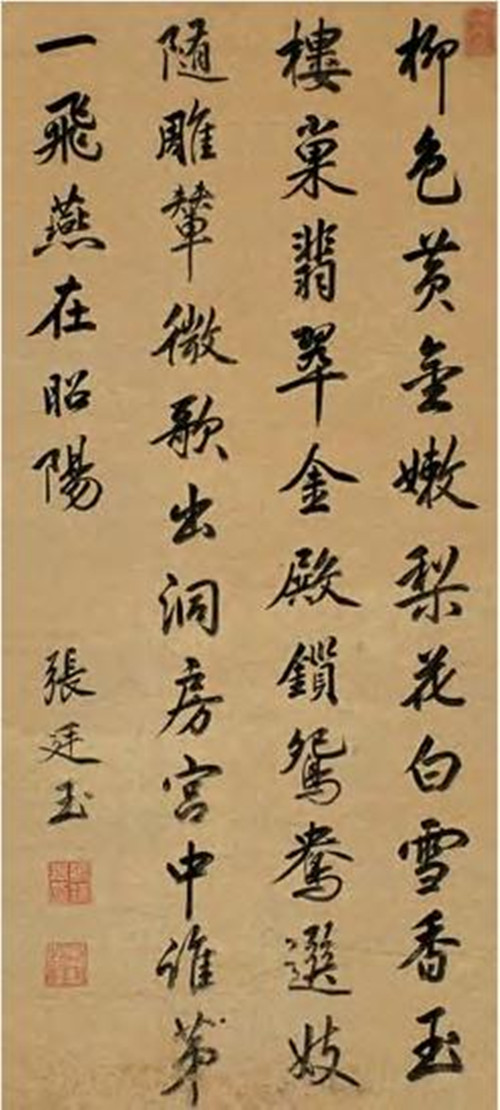 柳色黄金嫩梨花白雪香玉
樓巢翡翠金殿鎖鴛鴦選妓
隨雕輦微歌出洞房宮中誰苐
一飛燕在昭陽
張廷玉